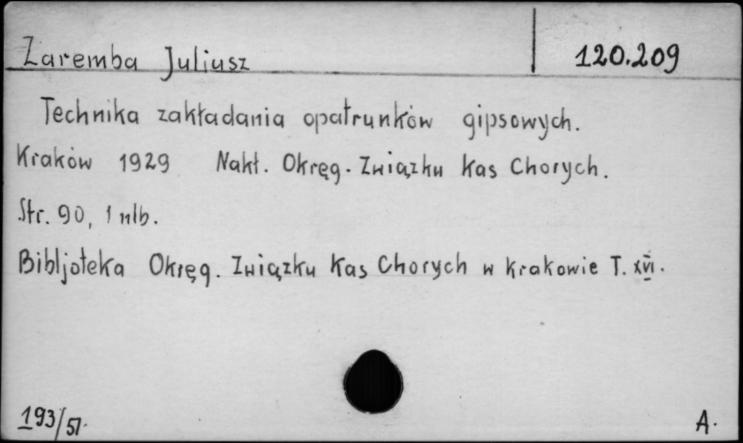 Zaremba Juliusz 120.209
Technika zakładania opatrunków gipsowych.
Kraków 1929 Nakł. Okręg. Związku Kas Chorych.
Str. 90, 1 nlb.
Bibljoteka Okręg. Związku Kas Chorych w Krakowie T. XVI.
193/51. A.